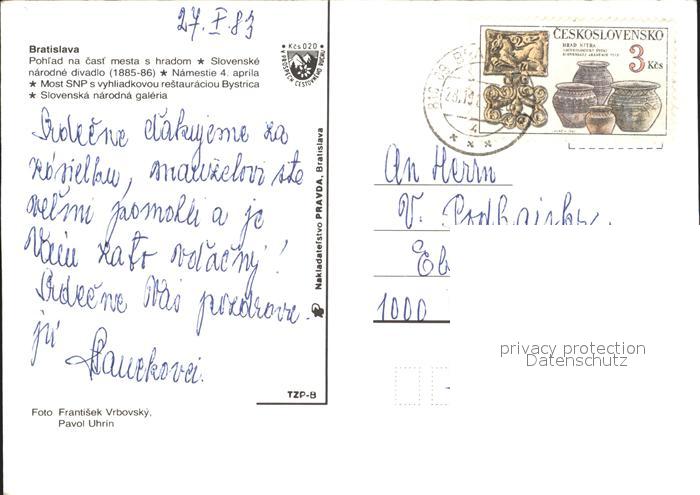 27. I. 83
Bratislava
Pohľad na časť mesta s hradom ★ Slovenské
národné divadlo (1885-86) ★ Námestie 4. apríla
★ Most SNP s vyhliadkovou reštauráciou Bystrica
★ Slovenská národná galéria
Kčs 020
V PROSPECH CESTOVNÉHO RUCHU
Srdečne ďakujeme za
zásielku, manželovi ste
veľmi pomohli a je
Vám zato vďačný!
Srdečne Vás pozdravu-
jú
Nakladateľstvo PRAVDA, Bratislava
TZP-B
Foto František Vrbovský,
Pavol Uhrín
ČESKOSLOVENSKO
HRAD NITRA
3 Kčs
An Herrn
V.
1000
privacy protection
Datenschutz